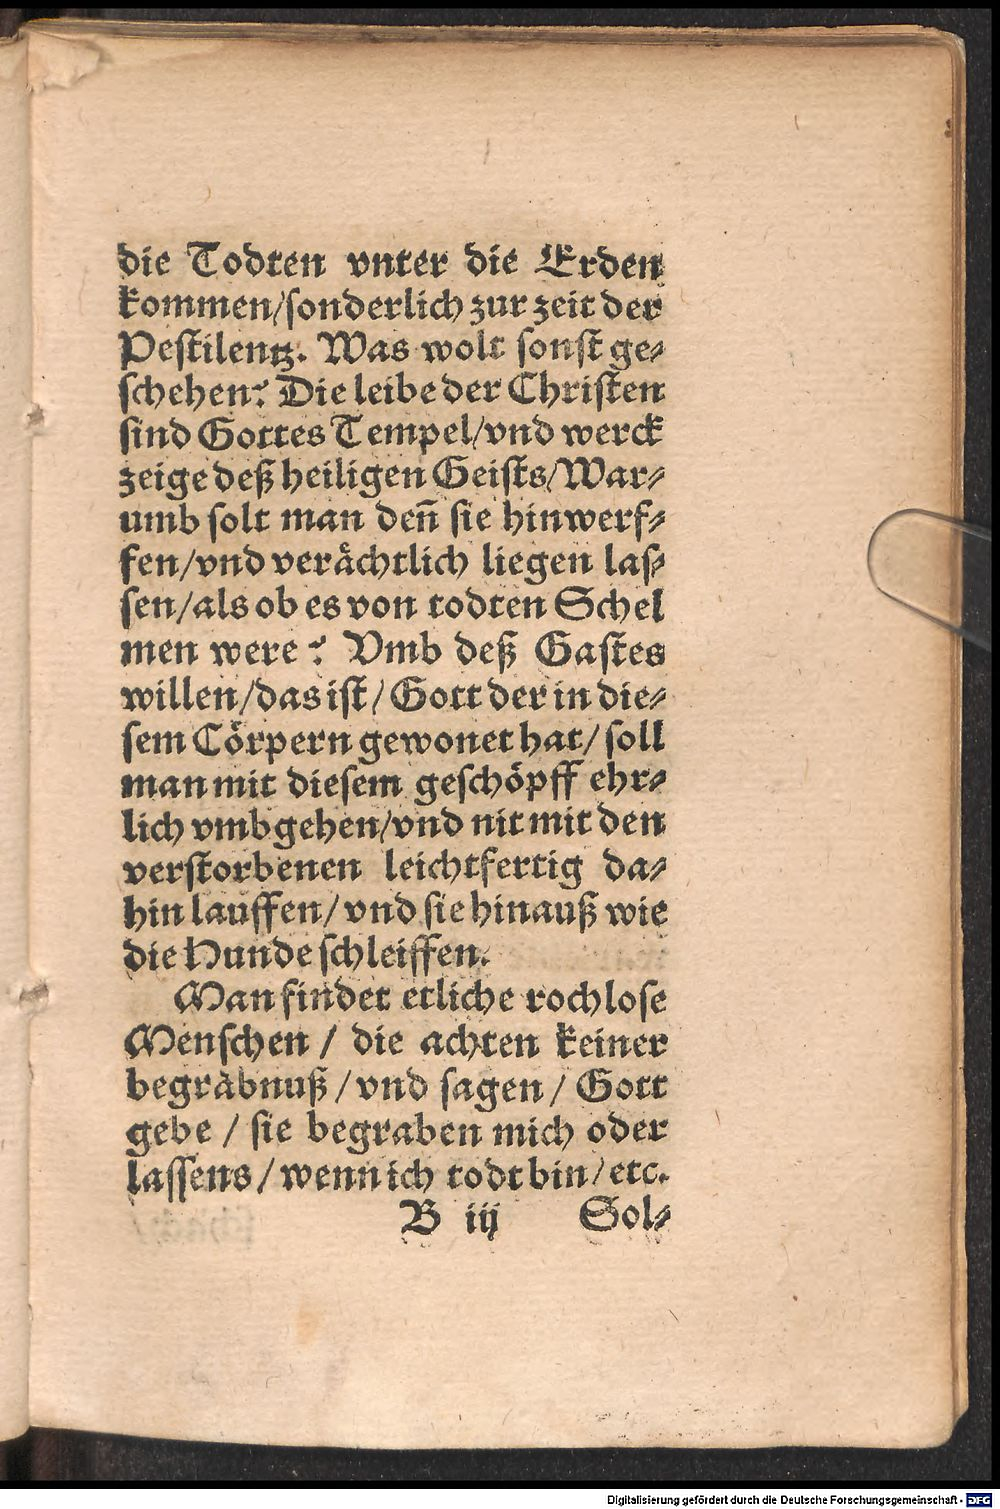 die Todten vnter die Erden
kommen/sonderlich zur zeit der
Pestilentz. Was wolt sonst ge-
schehen? Die leibe der Christen
sind Gottes Tempel/vnd werck
zeige deß heiligen Geists/War-
umb solt man deñ sie hinwerf-
fen/vnd verächtlich liegen las-
sen/als ob es von todten Schel
men were? Vmb deß Gastes
willen/das ist/Gott der in die-
sem Cörpern gewonet hat/soll
man mit diesem geschöpff ehr-
lich vmbgehen/vnd nit mit den
verstorbenen leichtfertig da-
hin lauffen/vnd sie hinauß wie
die Hunde schleiffen.
Man findet etliche rochlose
Menschen / die achten keiner
begräbnuß / vnd sagen / Gott
gebe / sie begraben mich oder
lassens / wenn ich todt bin/etc.
B iij Sol-
Digitalisierung gefördert durch die Deutsche Forschungsgemeinschaft - DFG